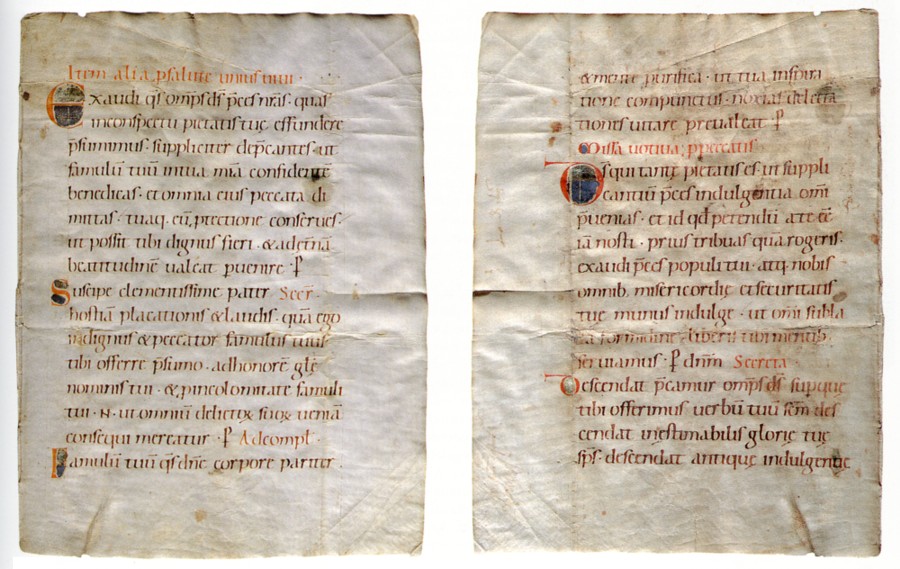 Item alia p salute unius uiui ·
Exaudi qs omps ds pces nras · quas
inconspectu pietatis tuę effundere
psumimus · suppliciter depcantes · ut
famulum tuū intua mīa confidentē
benedicas · et omnia eius peccata di
mittas · tuaq. eū, ptectione conserues ·
ut possit tibi dignus fieri · & adetnā
beatitudinē ualeat puenire · P
Suscipe clementissime pater Secr ·
hostiā placationis & laudis · quā ego
indignus & peccator famulus tuus
tibi offerre psumo · adhonorē glę
nominis tui · & pincolomitate famuli
tui · N · ut omniū delictoꝝ suoꝝ ueniā
consequi mereatur · P Adcompl ·
Famulū tuum qs dne corpore pariter ·
& mente purifica · ut tua inspira
tione compunctus · noxias delecta
tiones uitare preualeat P
Missa uotiua, p peccatis
Ds qui tantę pietatis es, ut suppli
cantiū pces indulgentia omi
puenias · et id qd petendū a te ee
iā nosti · prius tribuas quā rogeris ·
exaudi pces populi tui · atq. nobis
omnib. misericordię et securitatis
tuę munus indulge · ut omi subla
ta formidine liberis tibi mentib.
seruiamus · P dnm Secreta
Descendat pcamur omps ds supquę
tibi offerimus uerbū tuū scm des
cendat inestimabilis glorię tuę
sps · descendat antiquę indulgentię